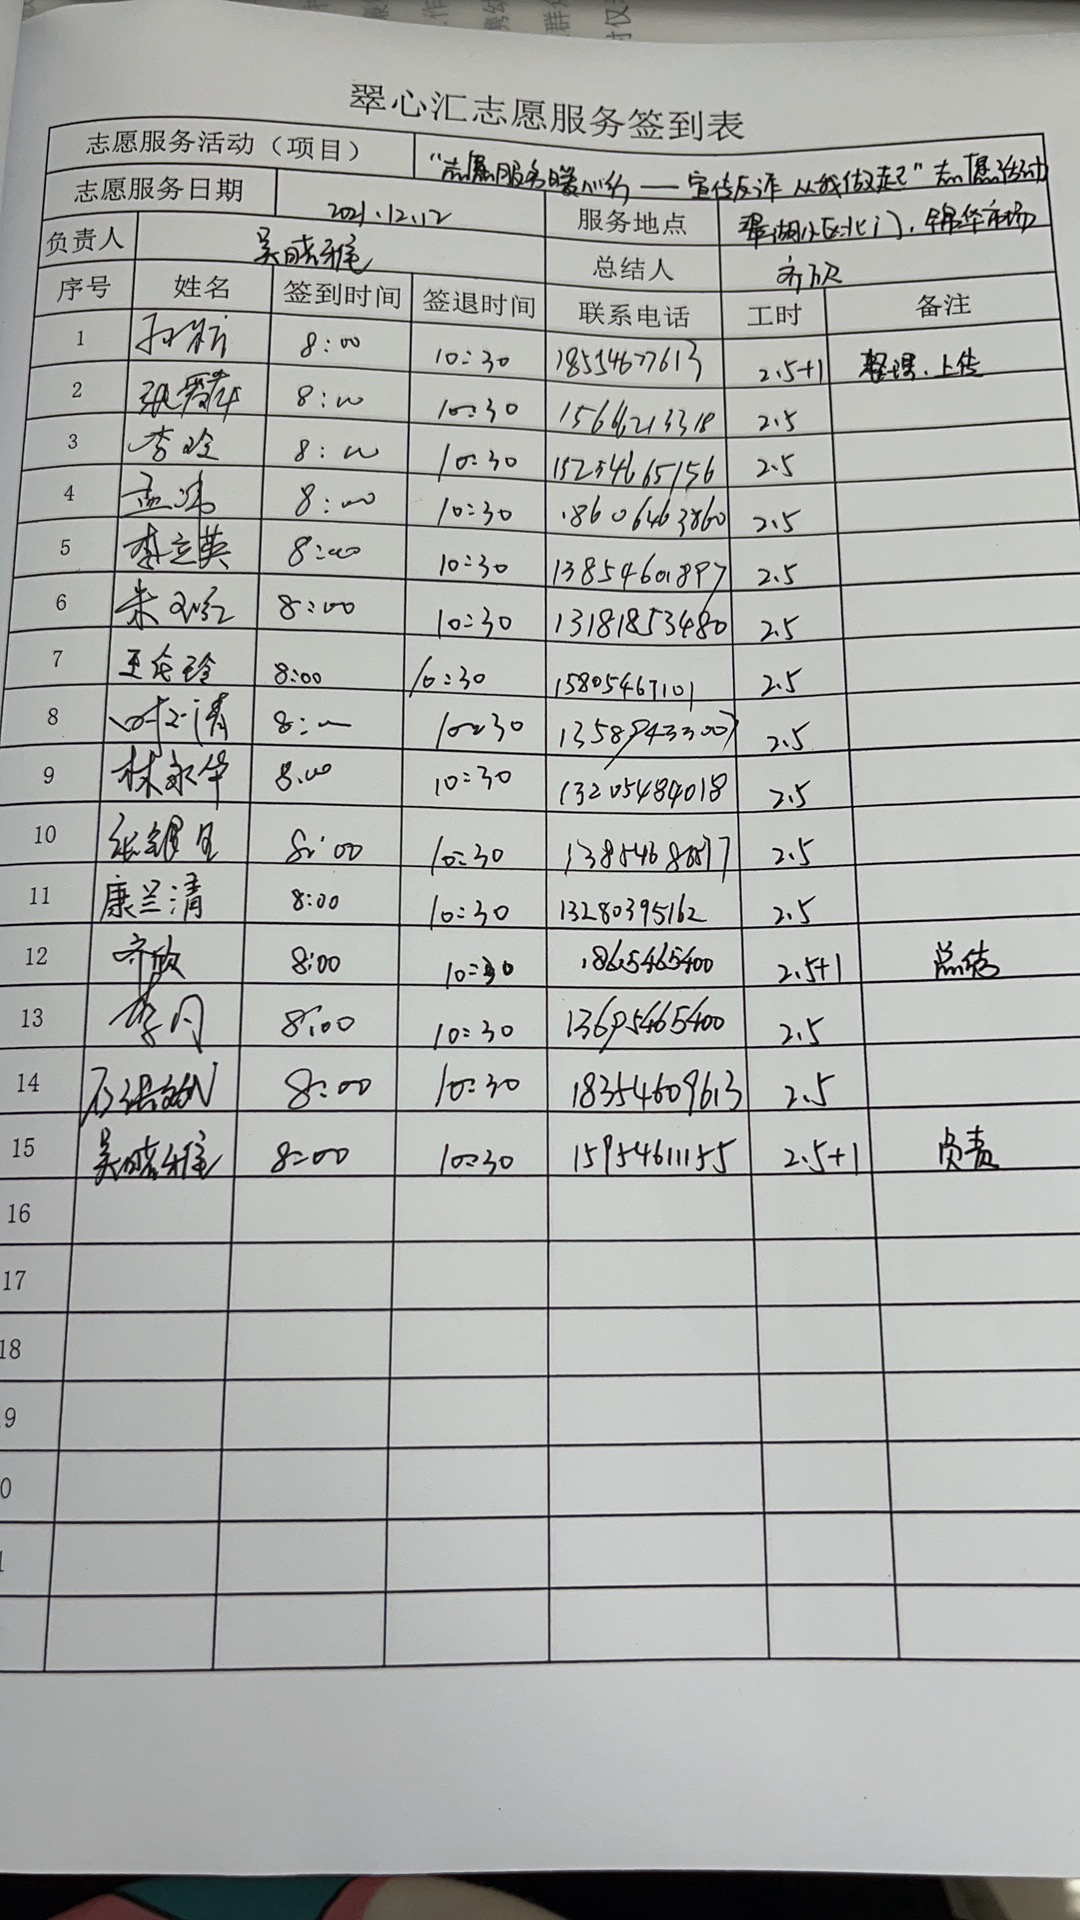 翠心汇志愿服务签到表
志愿服务活动（项目） “志愿服务暖心行——宣传反诈 从我做起”志愿活动
志愿服务日期 2021.12.12 服务地点 翠湖小区北门、锦华市场
负责人 吴晓雅 总结人 齐欣
序号 姓名 签到时间 签退时间 联系电话 工时 备注
1 8:00 10:30 18554677613 2.5+1 整理、上传
2 8:00 10:30 15666213318 2.5
3 李玲 8:00 10:30 15254665156 2.5
4 孟鸿 8:00 10:30 18606463860 2.5
5 李立英 8:00 10:30 13854601897 2.5
6 朱 8:00 10:30 13181853480 2.5
7 王 玲 8:00 10:30 15805467101 2.5
8 清 8:00 10:30 13589433007 2.5
9 林永华 8:00 10:30 13205484018 2.5
10 张 8:00 10:30 2.5
11 康兰清 8:00 10:30 13280395162 2.5
12 齐欣 8:00 10:30 18605465400 2.5+1 总结
13 李丹 8:00 10:30 13695465400 2.5
14 石 8:00 10:30 18354609613 2.5
15 吴晓雅 8:00 10:30 15954611155 2.5+1 负责
16
17
18
9
0
1